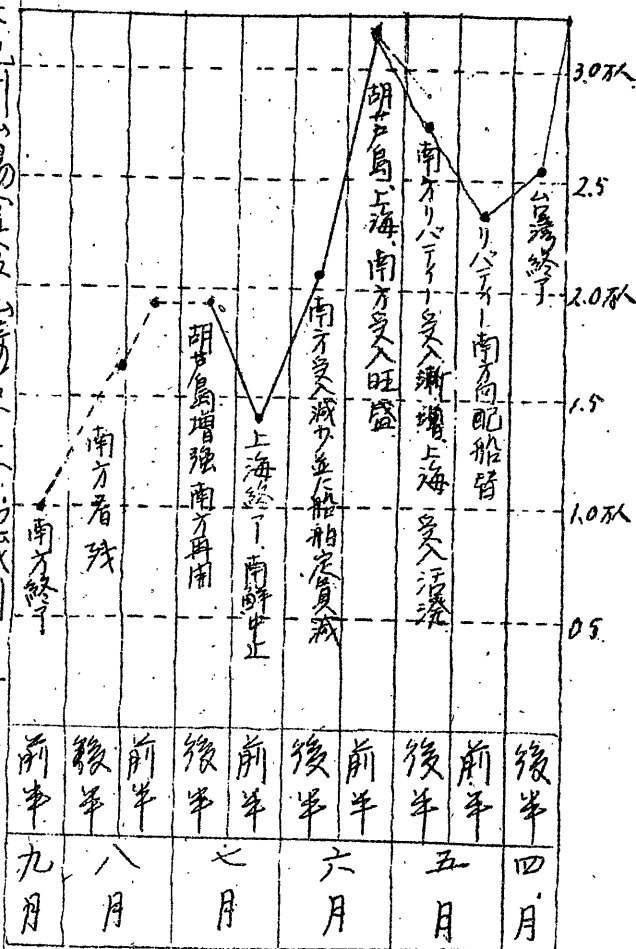 3.0万人
2.5
2.0万人
1.5
1.0万人
0.5
台湾終了
リバティー南方向配船替
南方リバティー受入漸増、上海 受入活溌
胡芦島、上海、南方受入旺盛
南方受入減少並に船舶定員減
上海終了、南鮮中止
胡芦島増強 南方再開
南方者残
南方終了
後半
前半
後半
前半
後半
前半
後半
前半
後半
前半
四月
五月
六月
七月
八月
九月